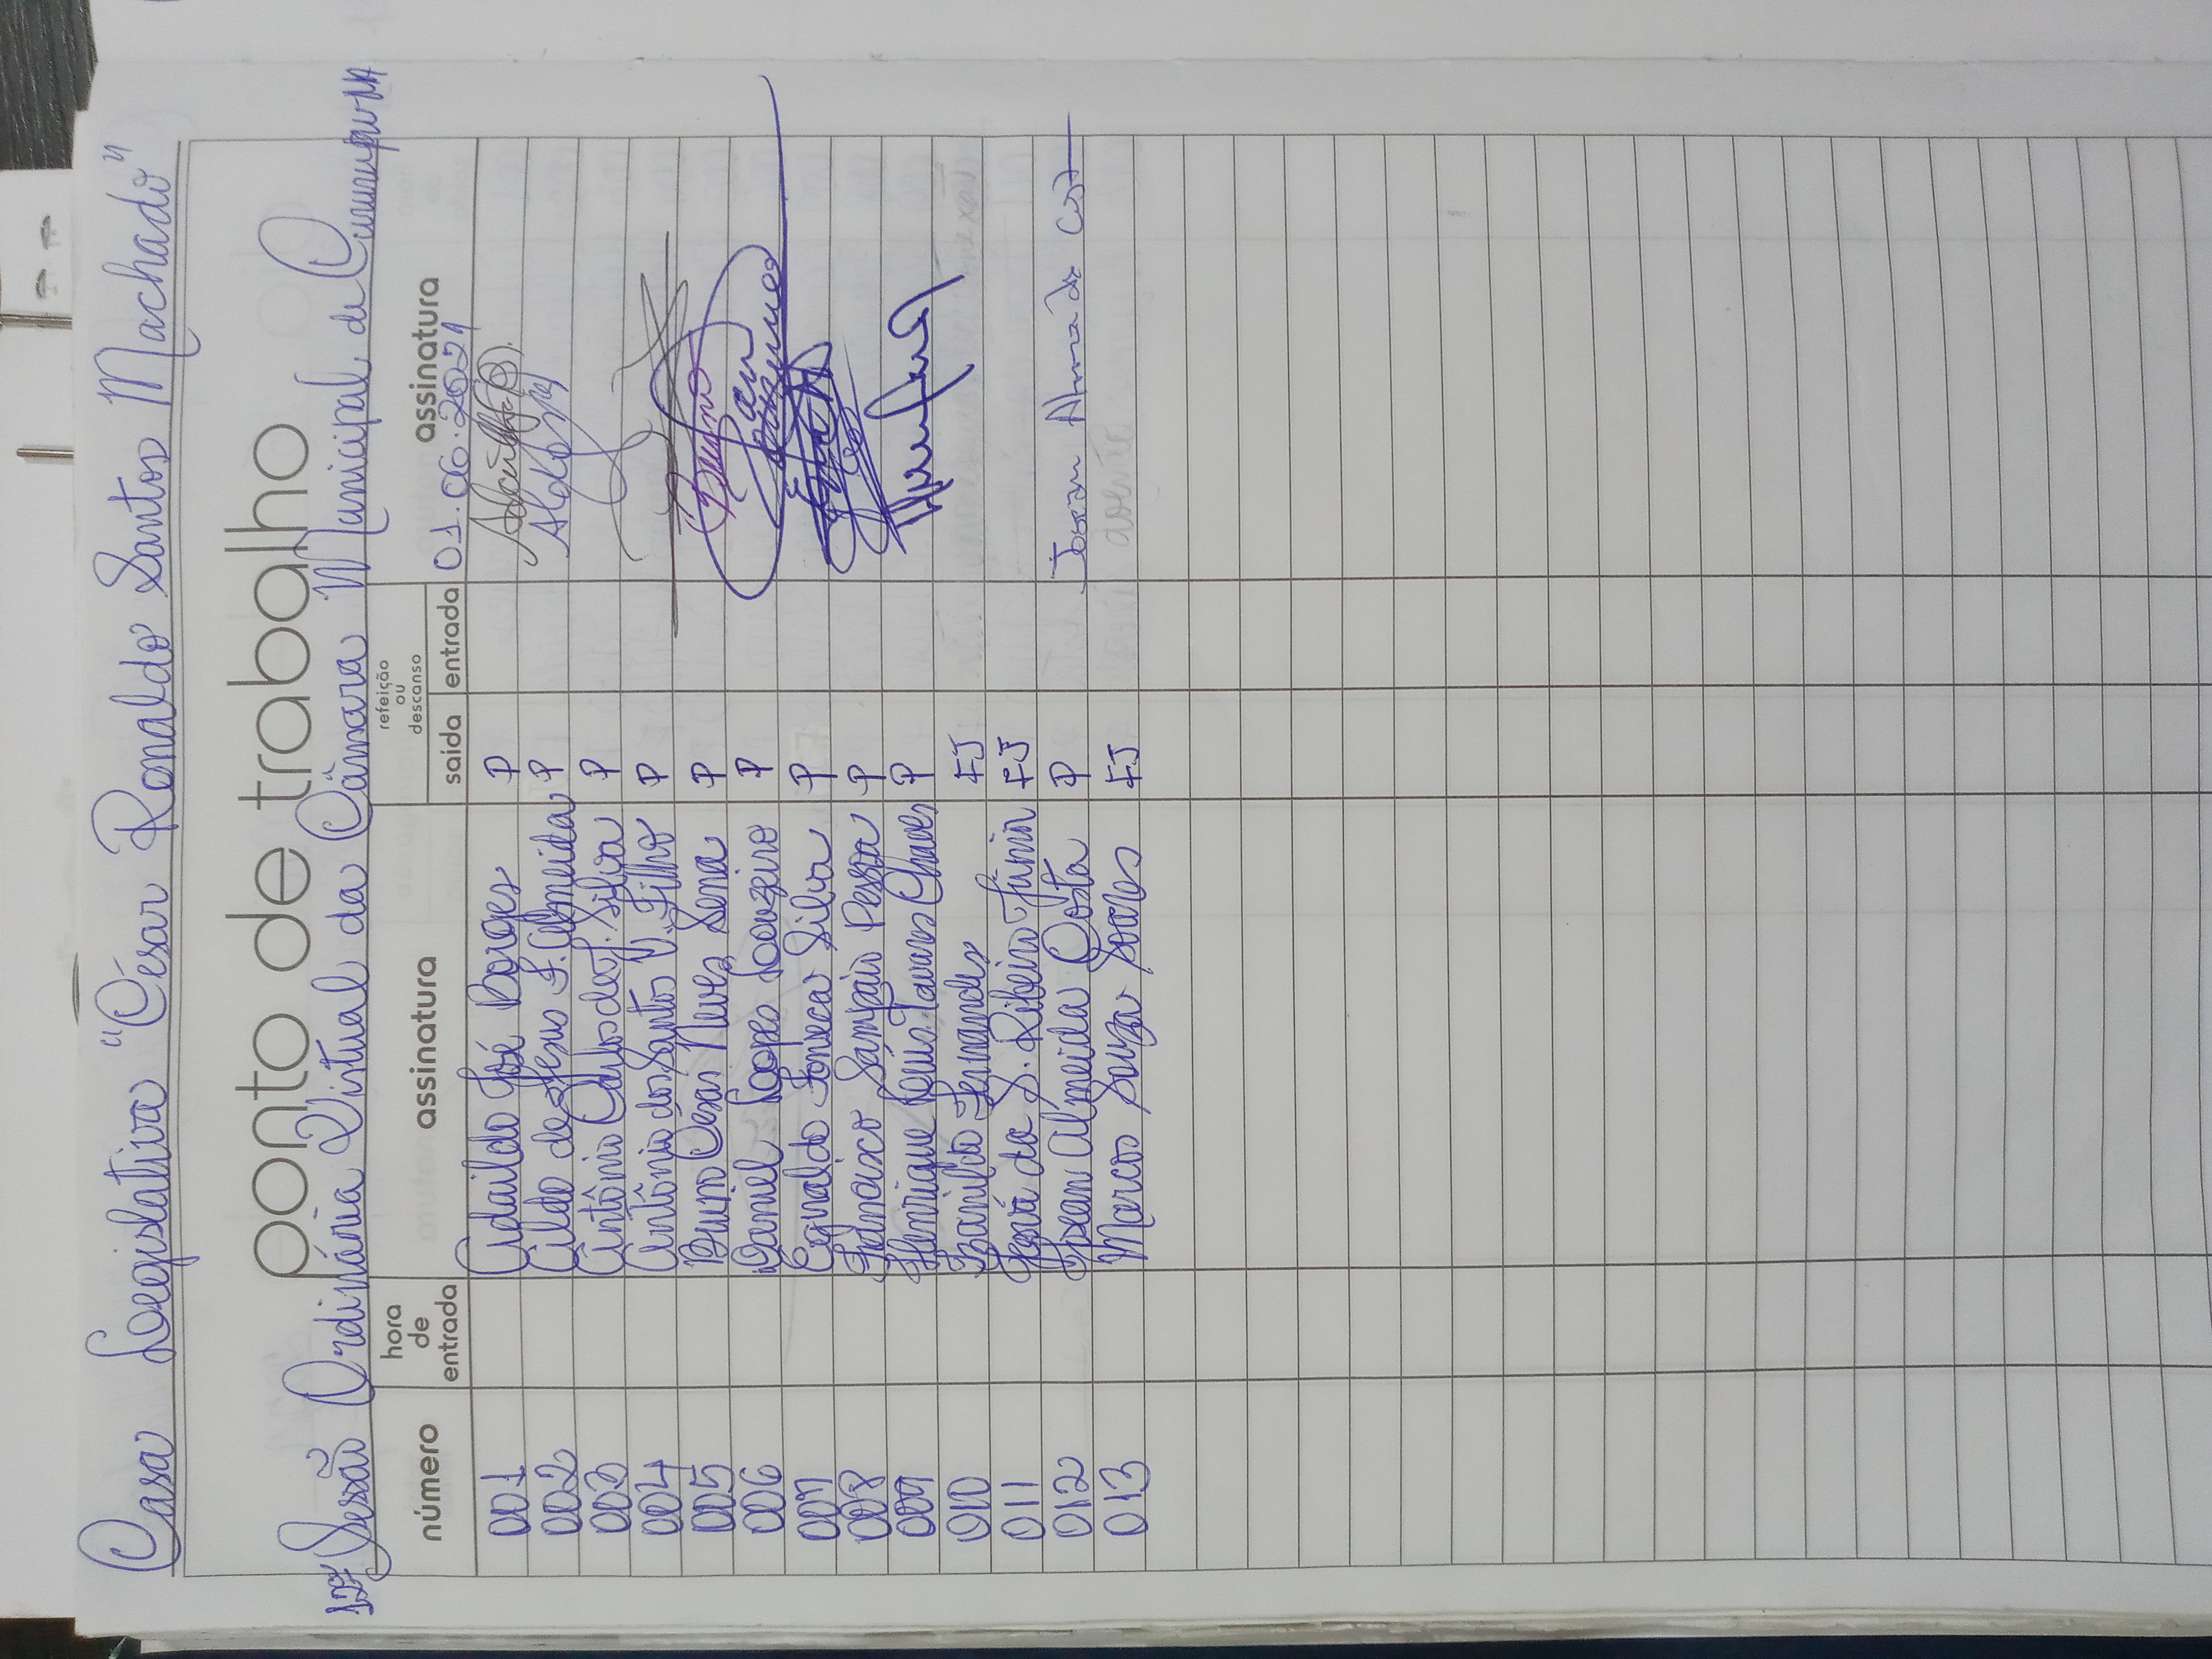 Casa Legislativa "César Ronaldo Santos Machado"
ponto de trabalho
12ª Sessão Ordinária Virtual da Câmara Municipal de Cururupu-MA
número hora de entrada assinatura refeição ou descanso saída entrada assinatura
01.06.2021
001 Adaildo José Borges P
002 Aildo de Jesus F. Almeida P Aildo
003 Antônio Carlos de J. Silva P
004 Antônio dos Santos P. Filho P
005 Bruno Cesar Neves Sena P Bruno
006 Daniel Lopes Louzeiro P Daniel Louzeiro
007 Egnaldo Fonseca Silva P
008 Francisco Sampaio Pessoa P
009 Henrique Tavares Chaves P
010 Ivanildo Fernandes FJ
011 José da S. Ribeiro Júnior FJ
012 Josean Almeida Costa P Josean Almeida Costa
013 Marcos Souza Soares FJ